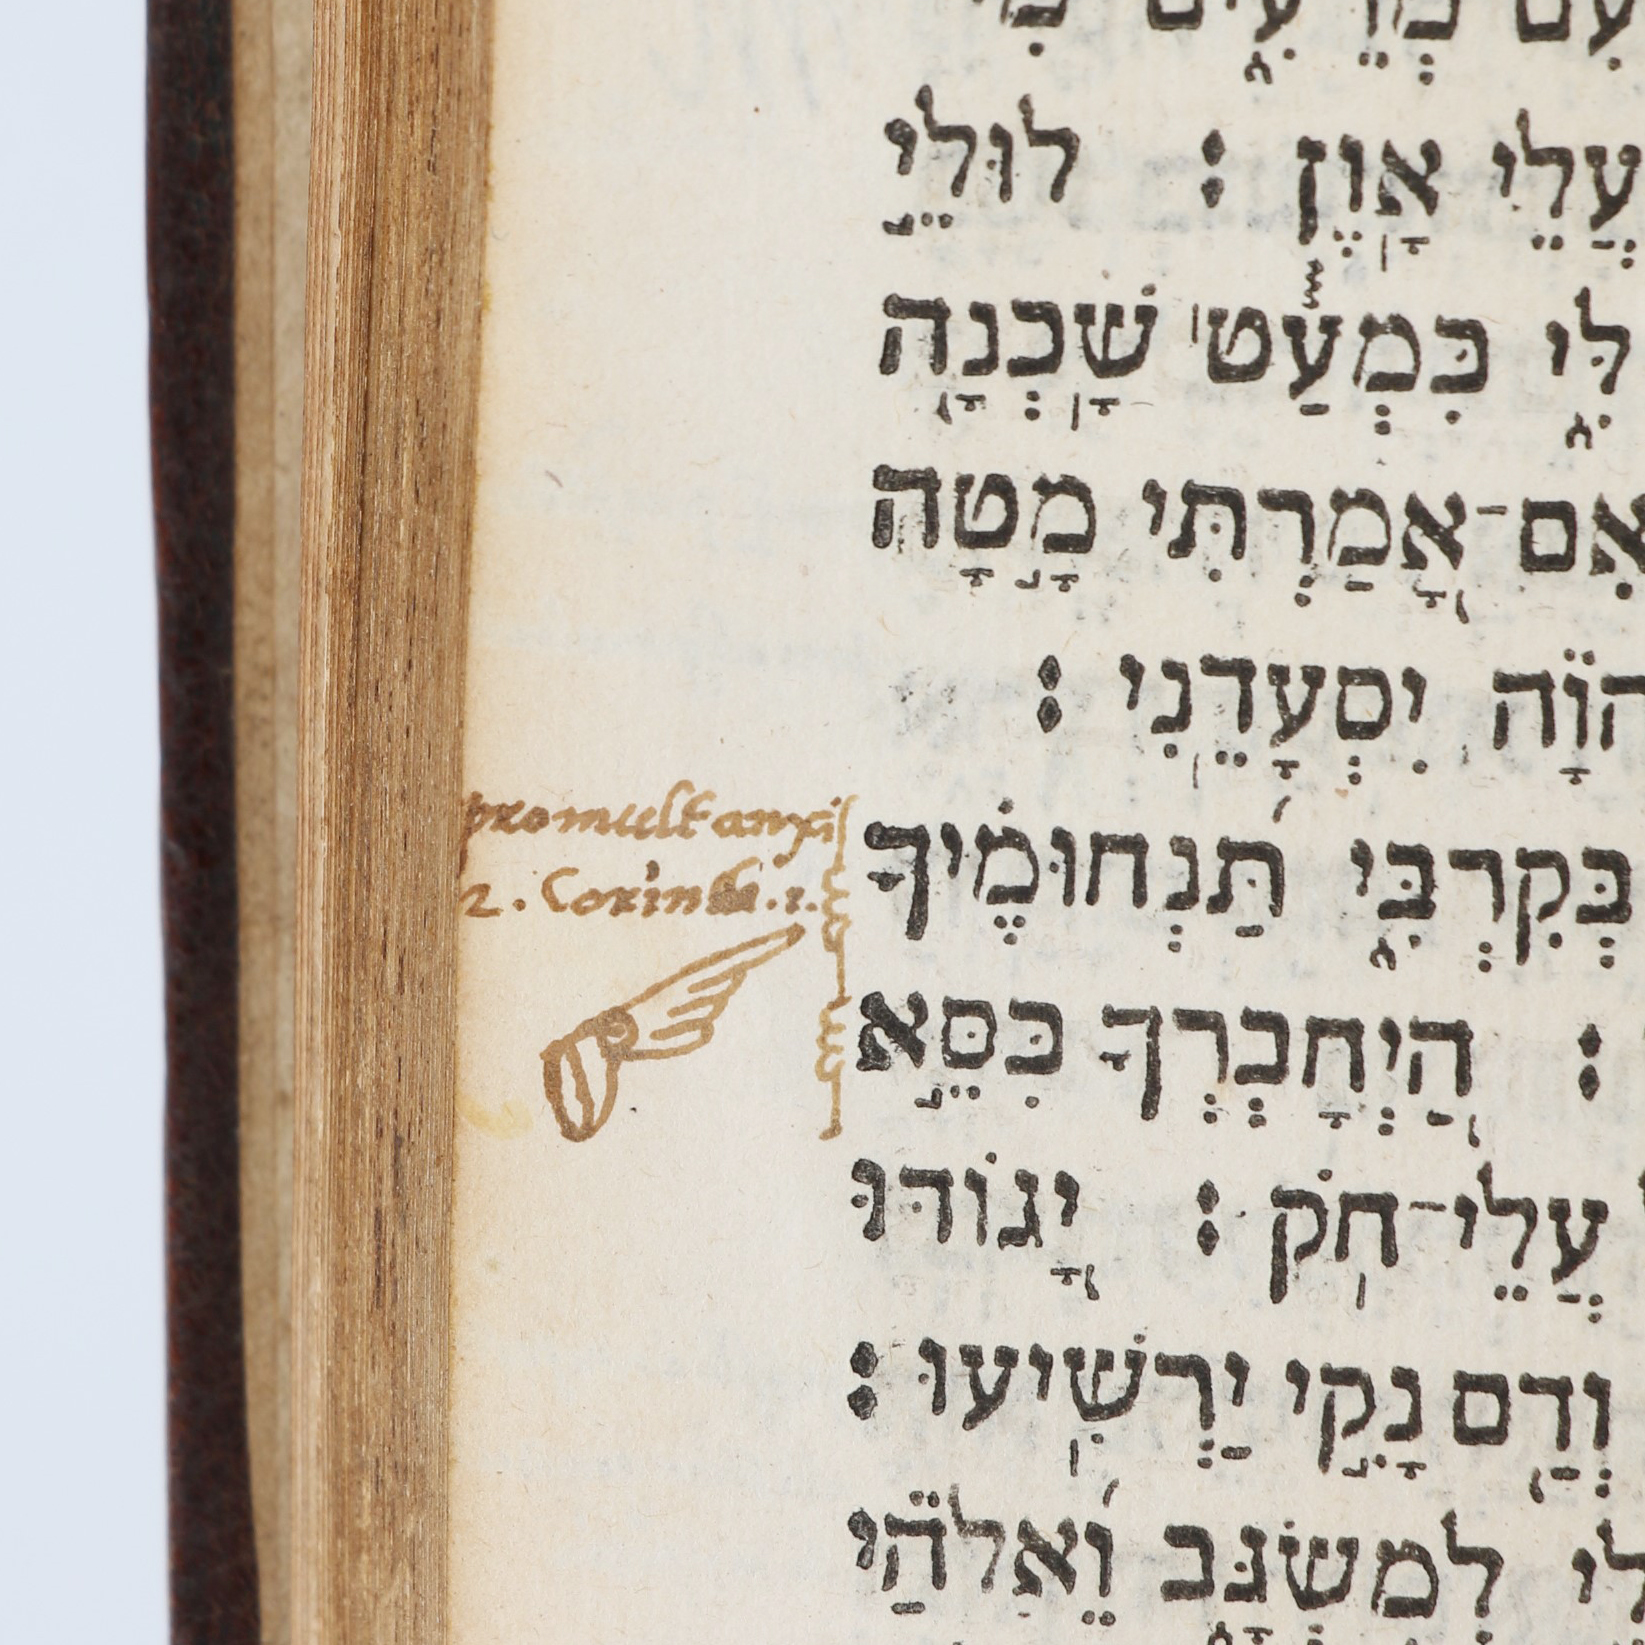 עִם מְרֵעִים מִי
עֲלֵי אָוֶן : לוּלֵי
לִּי כִּמְעַט שָׁכְנָה
אִם־אָמַרְתִּי מָטָה
יִסְעָדֵנִי :
promult anxi
2. Corinth. 1.
בְּקִרְבִּי תַּנְחוּמֶיךָ
: הַיְחָבְרְךָ כִּסֵּא
עֲלֵי־חֹק : יָגוֹדּוּ
וְדָם נָקִי יַרְשִׁיעוּ :
לִי לְמִשְׂגָּב וֵאלֹהַי